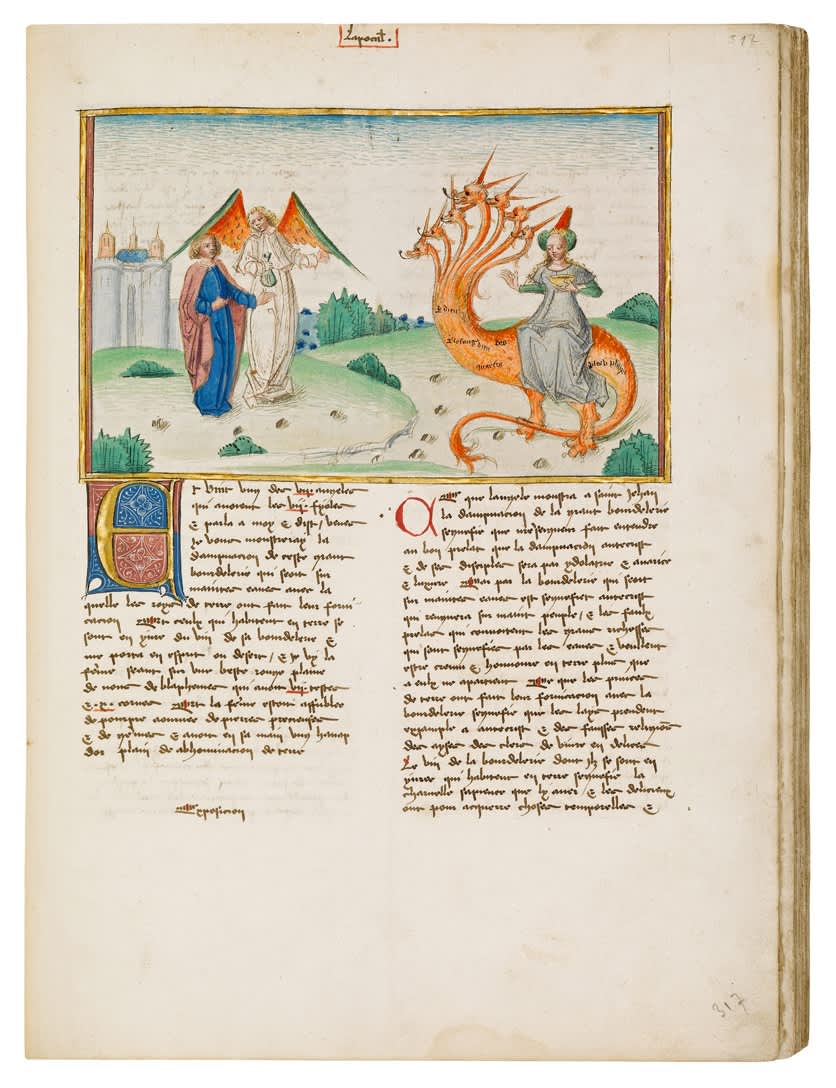 Lapocal.
317
A dieu
dieu
Et vint vng des vij. angeles
qui auoient les vij. fyoles
& parla a moy & dist / venes
Je vous monstreray la
dampnacion de ceste grant
bourdelerie qui seoit sur
maintes eaues auec la
quelle les roys de terre ont fait leur forni
cacion Et ceulx qui habitent en terre se
sont en yure du vin de sa bourdelerie &
me porta en esprit ou desert / & Je vy la
feme seant sur vne beste rouge plaine
de noms de blaphemes qui auoit vij. testes
& .x. cornes Et la feme estoit affublee
de pourpre aournee de pierres precieuses
& de gemes & auoit en sa main vng hanap
dor plain de abhominacion de terre
Exposicion
Ce que langele monstra a saint Jehan
la dampnacion de la grant bourdelerie
segnefie que nreseigneur fait entendre
au bon prelat que la dampnacion antecrist
& de ses disciples sera par ydolatrie & auarice
& luxure Mais par la bourdelerie qui seoit
sur maintes eaues est segnefiet antecrist
qui regnera sur maint peuple / & les faulx
prelas qui conuoitent les grans richesses
qui sont segnefiees par les eaues & veullent
estre creuis & honnoure en terre plus que
a eulx ne apartient Ce que les princes
de terre ont fait leur fornicacion auec la
bourdelerie segnefie que les lays prendent
exemple a antecrist & des faulses religions
des ayses des clers de viure en delices
Le vin de la bourdelerie dont ilz se sont en
yures qui habitent en terre segnefie la
charnelle sapience que ly auer / & les delicieux
ont pour acquerre choses temporelles &
317